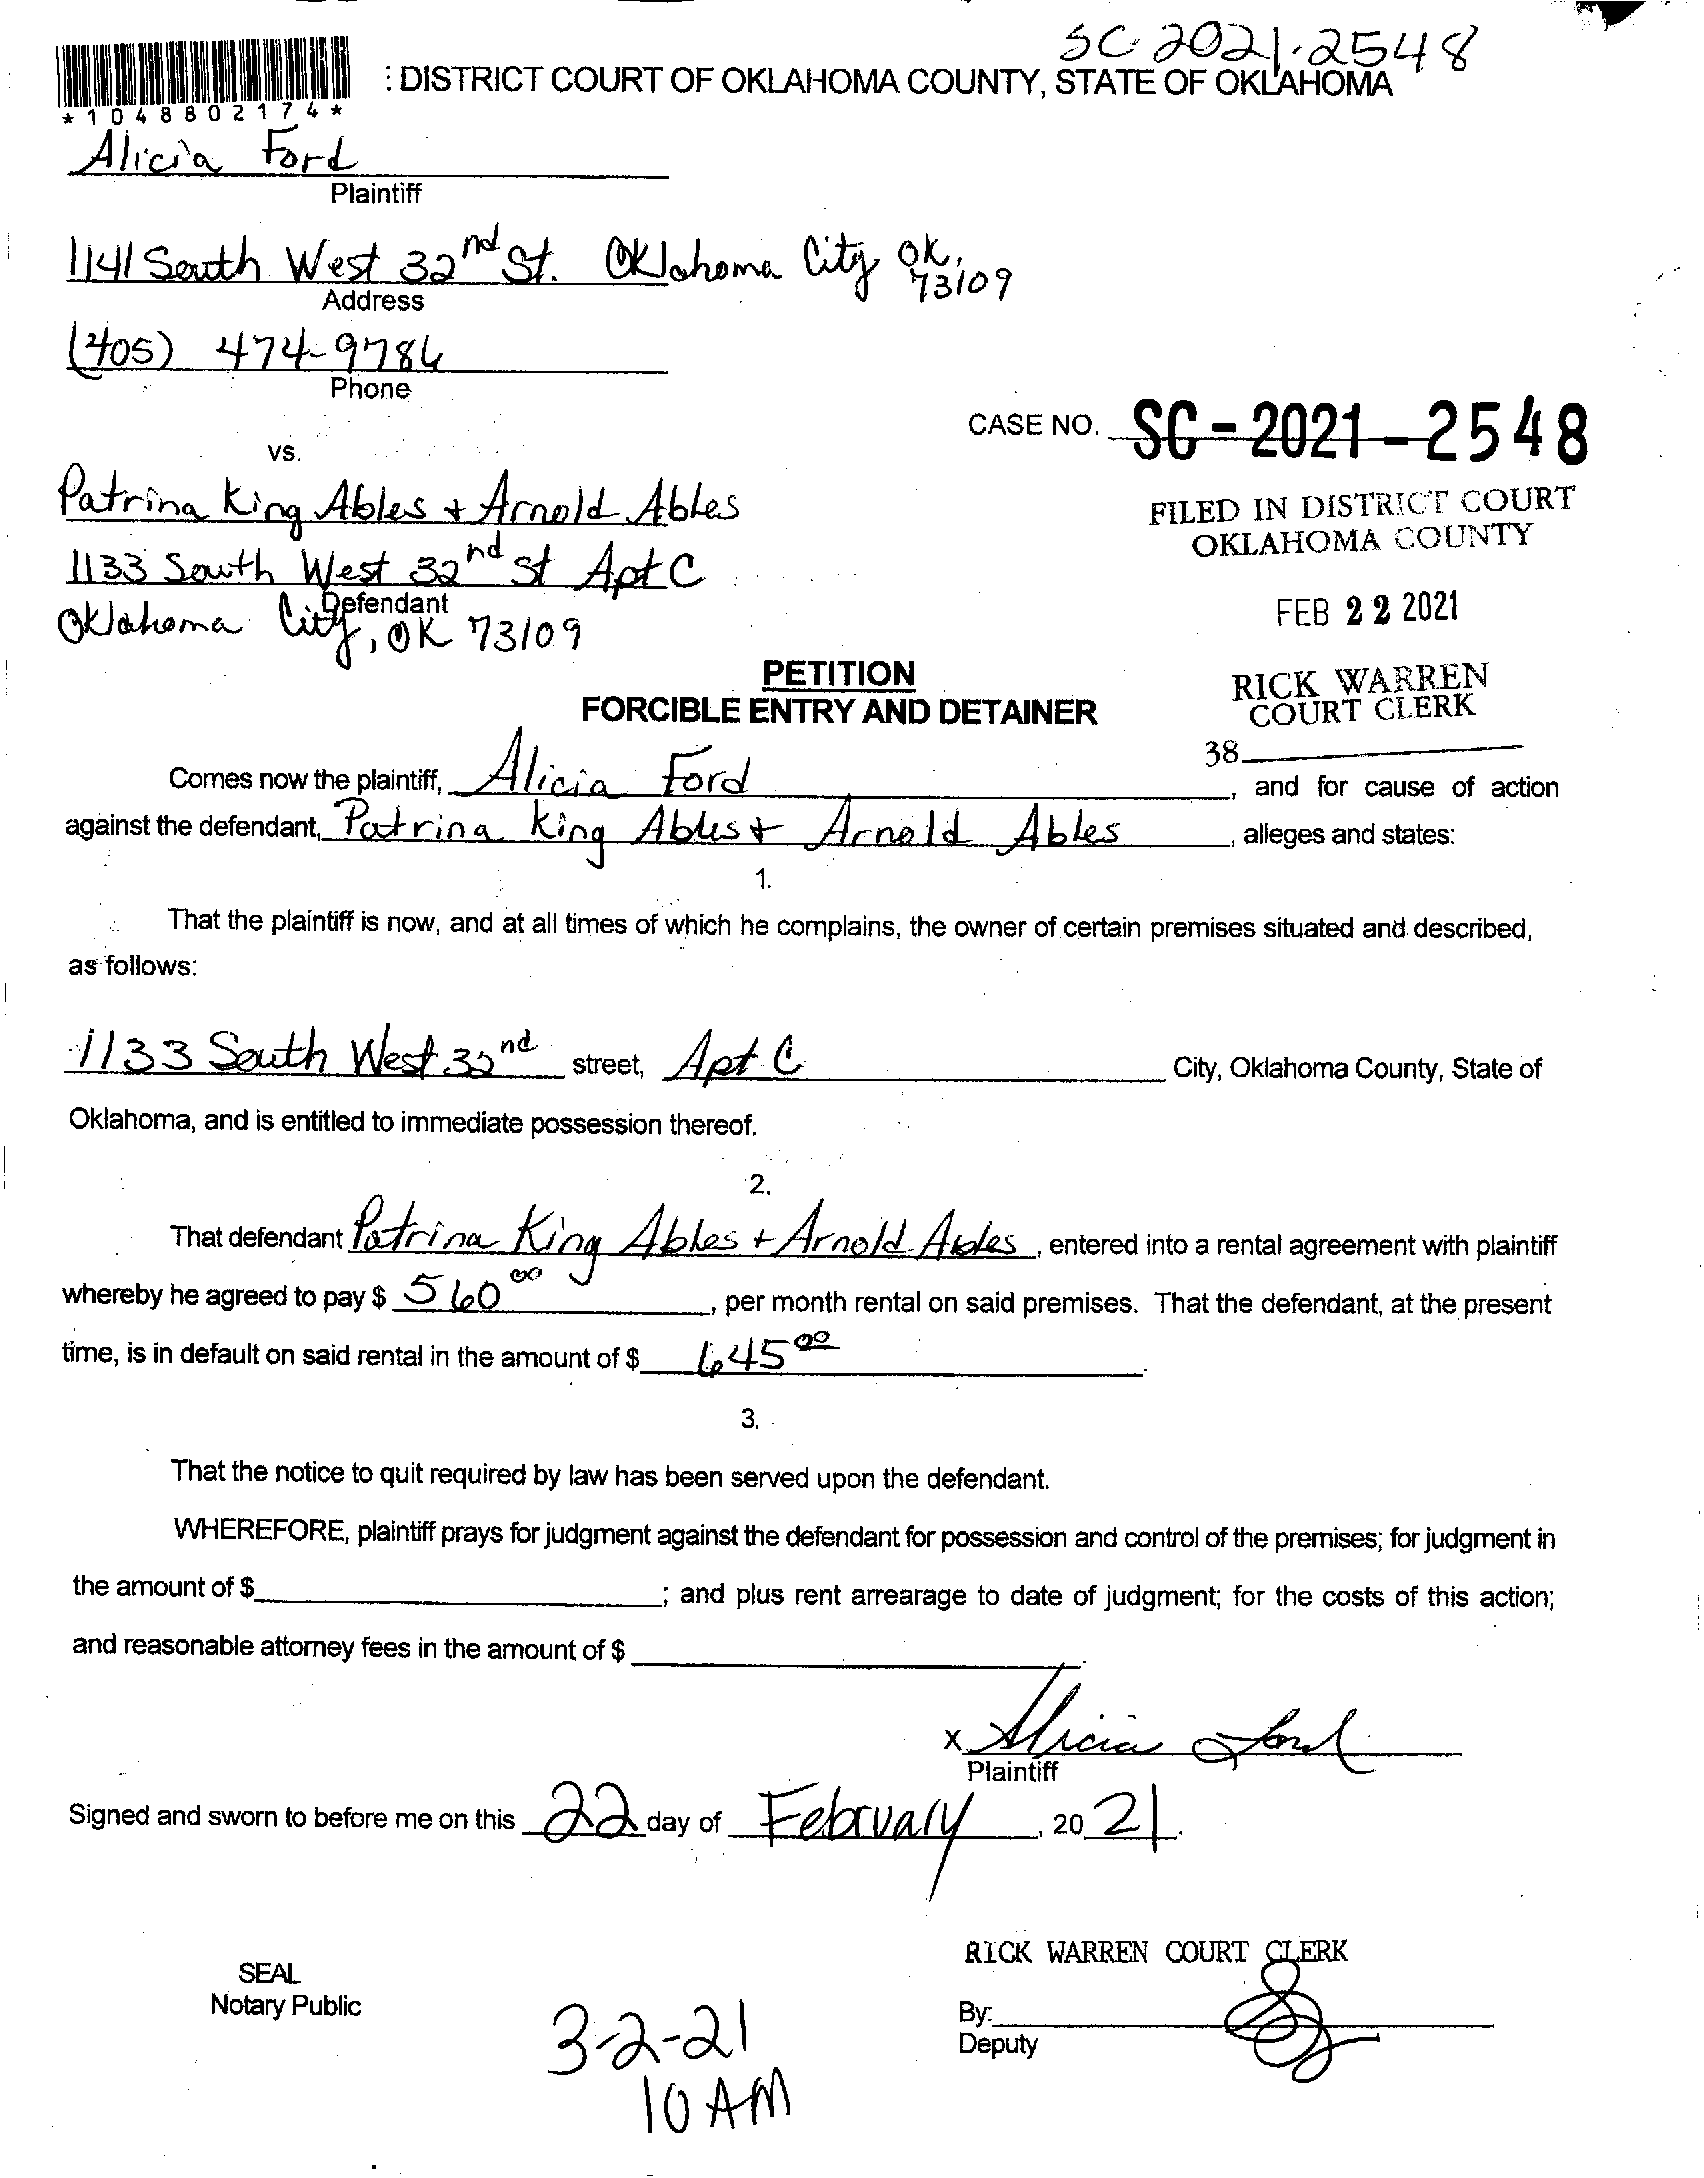 SC 2021-2548
: DISTRICT COURT OF OKLAHOMA COUNTY, STATE OF OKLAHOMA
*1048802174*
Alicia Ford
Plaintiff
1141 South West 32nd St. Oklahoma City OK, 73109
Address
(405) 474-9786
Phone
CASE NO. SC-2021-2548
vs.
Patrina King Ables + Arnold Ables
FILED IN DISTRICT COURT
OKLAHOMA COUNTY
1133 South West 32nd st Apt C
Defendant
FEB 22 2021
Oklahoma City, OK 73109
PETITION
RICK WARREN
FORCIBLE ENTRY AND DETAINER
COURT CLERK
38
Comes now the plaintiff, Alicia Ford, and for cause of action
against the defendant, Patrina King Ables + Arnold Ables, alleges and states:
1.
That the plaintiff is now, and at all times of which he complains, the owner of certain premises situated and described,
as follows:
1133 South West 32nd street, Apt C City, Oklahoma County, State of
Oklahoma, and is entitled to immediate possession thereof.
2.
That defendant Patrina King Ables + Arnold Ables, entered into a rental agreement with plaintiff
whereby he agreed to pay $ 560 00, per month rental on said premises. That the defendant, at the present
time, is in default on said rental in the amount of $ 645 00.
3.
That the notice to quit required by law has been served upon the defendant.
WHEREFORE, plaintiff prays for judgment against the defendant for possession and control of the premises; for judgment in
the amount of $ ; and plus rent arrearage to date of judgment; for the costs of this action;
and reasonable attorney fees in the amount of $
x Alicia Ford
Plaintiff
Signed and sworn to before me on this 22 day of February, 20 21.
RICK WARREN COURT CLERK
SEAL
Notary Public
By:
Deputy
3-2-21
10 AM